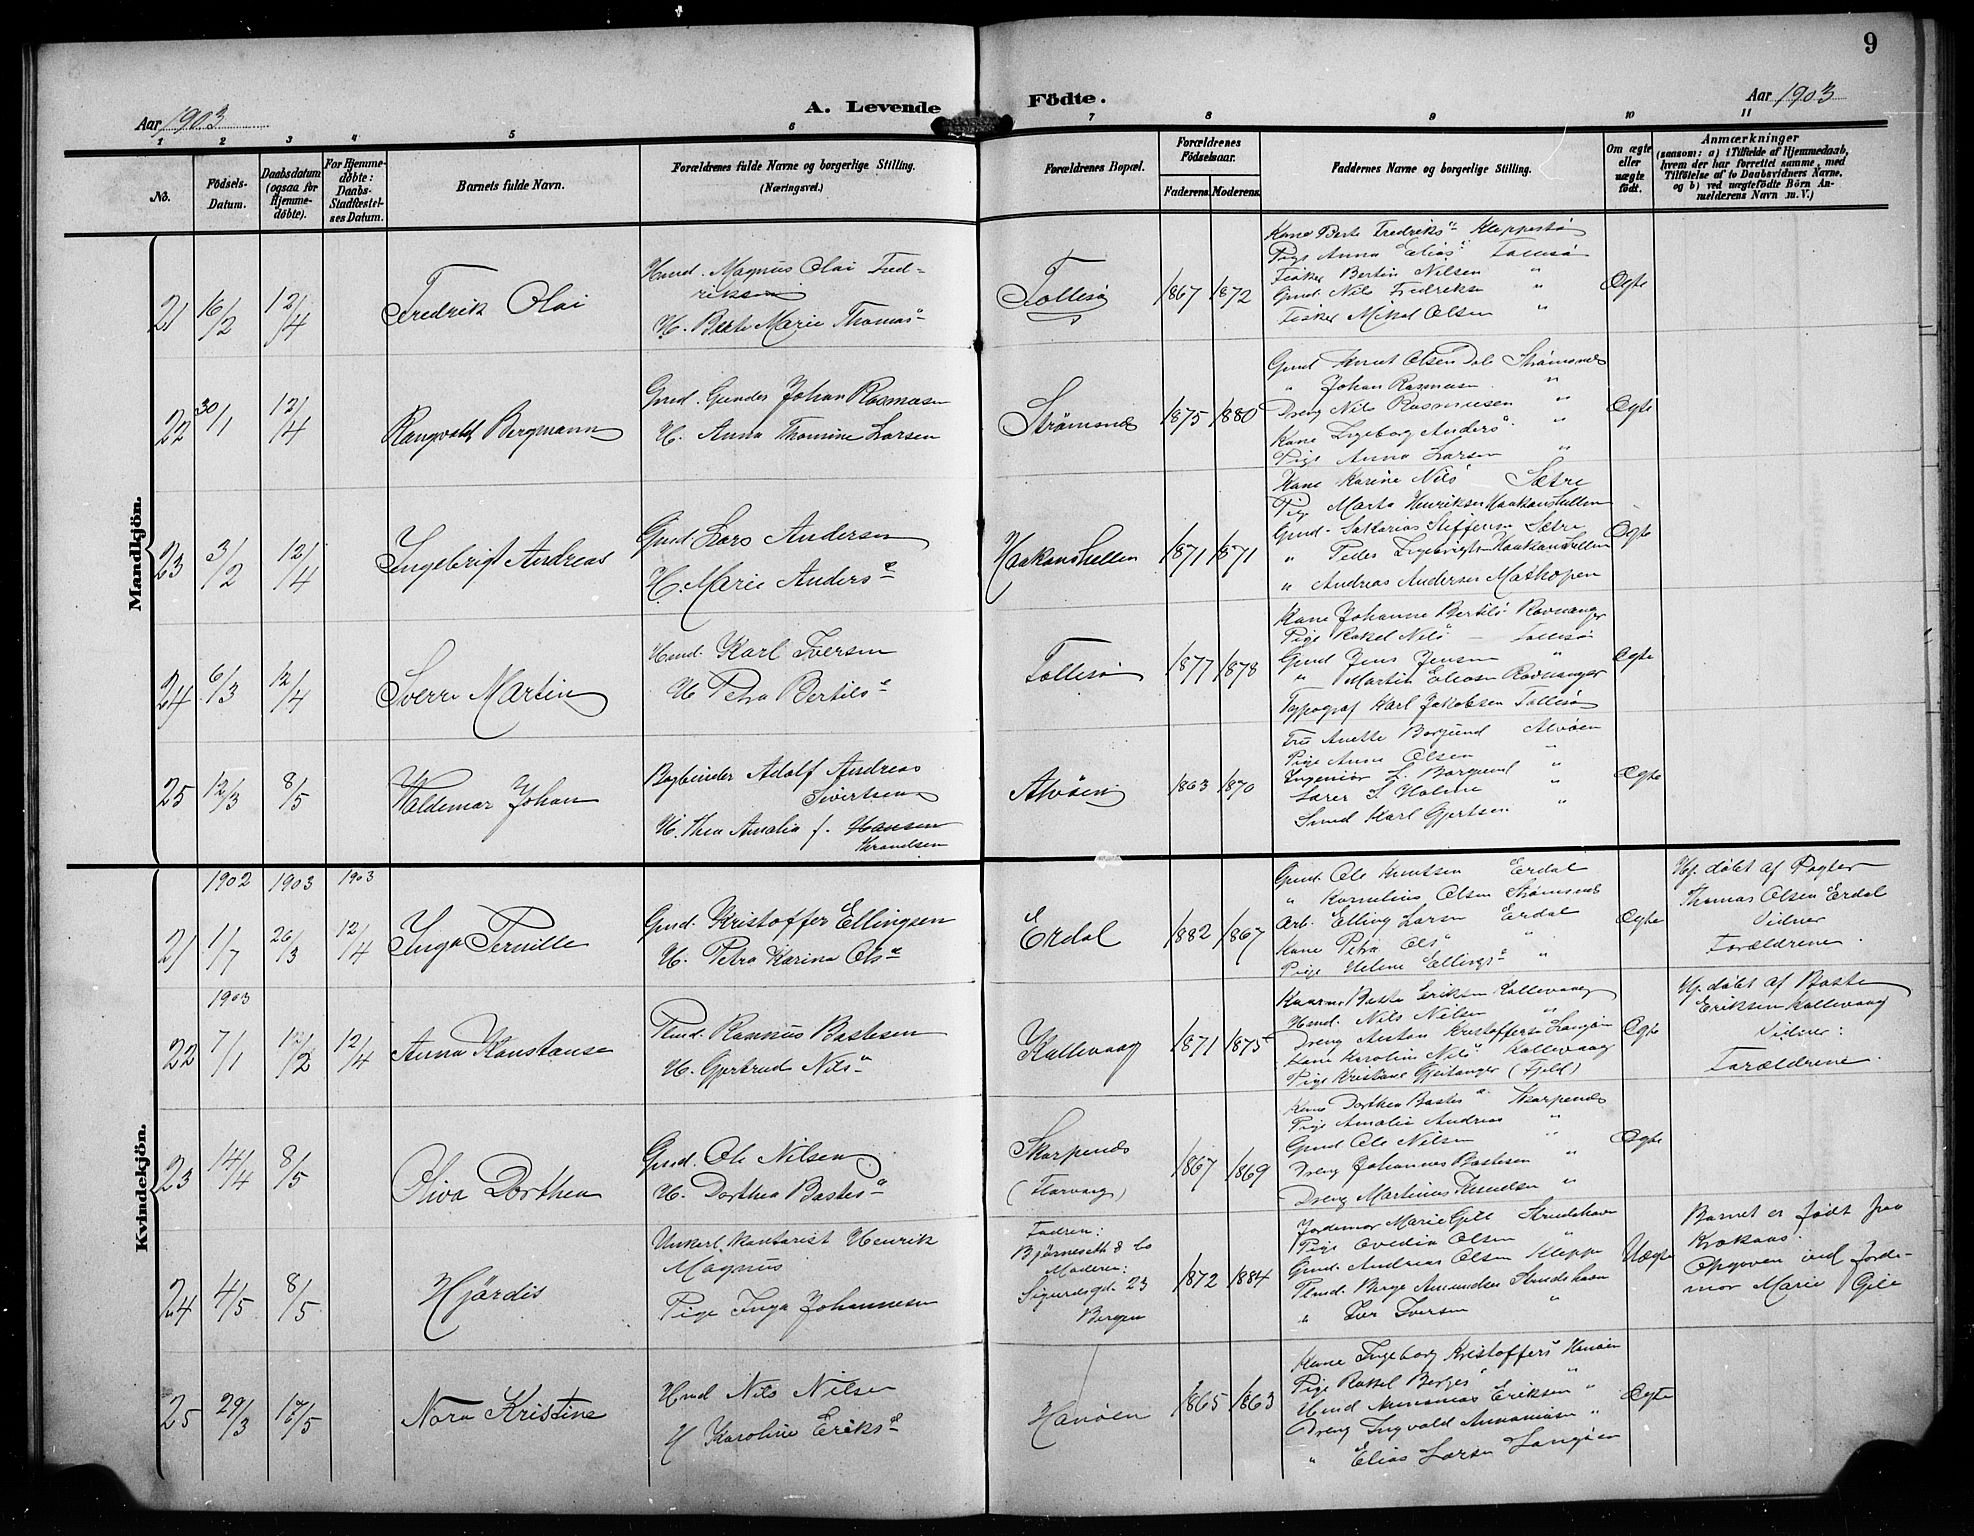 9
A. Levende Födte.
Aar 1903
Aar 1903
1 2 3 4 5 6 7 8 9 10 11
No.
Födsels-
Datum.
Daabsdatum
(ogsaa for
Hjemme-
døbte).
For Hjemme-
döbte:
Daabs-
Stadfæstel-
ses Datum.
Barnets fulde Navn.
Forældrenes fulde Navne og borgerlige Stilling.
(Næringsvei.)
Forældrenes Bopæl.
Forældrenes
Födselsaar.
Faderens. Moderens.
Faddernes Navne og borgerlige Stilling.
Om ægte
eller
uægte
födt.
Anmærkninger
(saasom: a) i Tilfælde af Hjemmedaab,
hvem der har forrettet samme, med
Tilföielse af to Daabsvidners Navne,
og b) ved uægtefödte Börn An-
melderens Navn m. V.)
Mandkjön.
21 16/2 12/4 Fredrik Olai
Hmd. Magnus Olai Fred-
riksen
H. Berte Marie Thomasd
Follesø 1867 1872
Kone Berte Fredriksd Kleppestø
Pige Anna Eliasd Follesø
Fisker Bertin Nilsen "
Gmd. Nils Fredriksen "
Fisker Mikal Olsen "
Ægte
22 30/1 12/4 Rangvald Bergmann
Gmd. Gunder Johan Rasmusen
H. Anna Thomine Larsen
Strømsnes 1875 1880
Gmd Knut Olsen Dale Strømsnes
" Johan Rasmusen "
Dreng Nils Rasmussen "
Kone Ingeborg Andersd "
Pige Anna Larsen "
Ægte
23 3/2 12/4 Ingebrigt Andreas
Gmd Lars Andersen
H. Marie Andersd
Haakonshellen 1871 1871
Kone Karine Nilsd Sætre
Pige Marta Henriksen Haakonshellen
Gmd. Sakarias Steffensen Sætre
" Peder Ingebrigtsen Haakonshellen
" Andreas Andersen Mathopen
Ægte
24 6/3 12/4 Sverre Martin
Hmd. Karl Iversen
H. Petra Bertilsd
Follesø 1877 1878
Kone Johanne Bertilsd Ravnanger
Pige Rakel Nilsd Follesø
Gmd Jens Jensen "
" Martin Eliasen Ravnanger
Typograf Karl Jakobsen Follesø
Ægte
25 12/3 8/5 Waldemar Johan
Bogbinder Adolf Andreas
Sivertsen
H. Thea Amalia f. Hansen
Alvøen 1863 1870
Fru Anette Borgund Alvøen
Pige Anna Olsen "
Ingeniør L. Borgund "
Lærer S. Holme "
Smed Karl Gjertsen "
Ægte
Kvindekjön.
1902 1903 1903
21 1/7 26/3 12/4 Inga Pernille
Gmd. Kristoffer Ellingsen
H. Petra Karina Olsd
Erdal 1882 1867
Gmd. Ole Knutsen Erdal
" Kornelius Olsen Strømsnes
Arb. Elling Larsen Erdal
Kone Petra Olsd "
Pige Helene Ellingsd "
Ægte
Hj. døbt af Pogter
Thomas Olsen Erdal
Vidner
Forældrene.
1903
22 7/1 12/2 12/4 Anna Konstanse
Plmd. Rasmus Bastesen
H. Gjertrud Nilsd
Kallevaag 1871 1875
Baste Eriksen Kallevaag
Hmd. Nils Nilsen "
Dreng Anton Kristoffersen Langøen
Kone Karoline Nilsd Kallevaag
Pige Kristiane Gjeitanger (Fjeld)
Ægte
Hj. døbt af Baste
Eriksen Kallevaag
Vidner:
Forældrene.
23 14/4 8/5 Oliva Dorthea
Gmd. Ole Nilsen
H. Dorthea Bastesd
Skarpenes
(Florvaag)
1867 1869
Kone Dorthea Bastesd Skarpenes
Pige Amalie Andreas "
Gmd Ole Nilsen "
Dreng Johannes Bastesen "
Dreng Martinus Knudsen "
Ægte
24 4/5 8/5 Hjördis
Unkarl Kontorist Henrik
Magnus
Pige Inga Johannesen
Fadren:
Bjørnseth & Co
Moderen:
Sigurdsgd. 23
Bergen
1872 1884
Jordemor Marie Gill Strudshavn
Pige Ovedia Olsen "
Gmd. Andreas Olsen Kleppe
Plmd. Berge Amundsen Strudshavn
" Iver Iversen "
Uægte
Barnet er født paa
Krokaas.
Opgiven ved Jorde-
mor Marie Gill
25 29/3 17/5 Nora Kristine
Hmd Nils Nilsen
H Karoline Eriksd
Hanøen 1865 1863
Kone Ingeborg Kristoffersd Hanøen
Pige Rakel Bergesd "
Hmd Annanias Eriksen "
Dreng Ingvald Annaniasen "
" Elias Larsen Langøen
Ægte